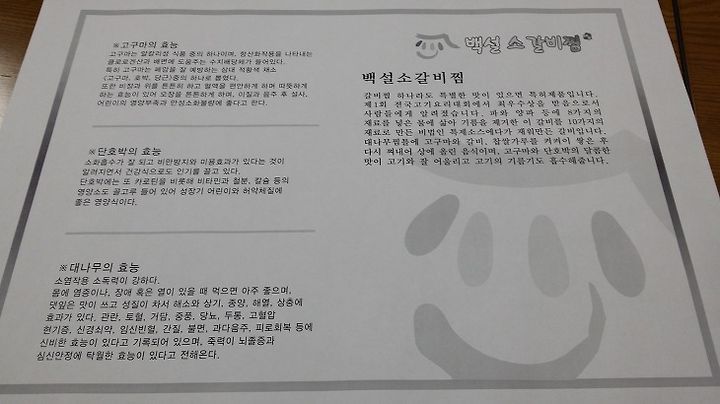 ※고구마의 효능
고구마는 알칼리성 식품 중의 하나이며, 항산화작용을 나타내는
클로로겐산과 배변에 도움주는 수지배당체가 들어있다.
특히 고구마는 폐암을 잘 예방하는 삼대 적황색 채소
<고구마, 호박, 당근>중의 하나로 뽑혔다.
또한 비장과 위를 튼튼히 하고 혈액을 편안하게 하며 따뜻하게
하는 효능이 있어 오장을 튼튼하게 하며, 이질과 음주 후 설사,
어린이의 영양부족과 만성소화불량에 좋다고 한다.
※단호박의 효능
소화흡수가 잘 되고 비만방지와 미용효과가 있다는 것이
알려지면서 건강식으로도 인기를 끌고 있다.
단호박에는 또 카로틴을 비롯해 비타민과 철분, 칼슘 등의
영양소도 골고루 들어 있어 성장기 어린이와 허약체질에
좋은 영양식이다.
※대나무의 효능
소염작용 소독력이 강하다.
몸에 염증이나, 장애 혹은 열이 있을 때 먹으면 아주 좋으며,
댓잎은 맛이 쓰고 성질이 차서 해소와 상기, 중앙, 해열, 상충에
효과가 있다. 관란, 토혈, 거담, 중풍, 당뇨, 두통, 고혈압
현기증, 신경쇠약, 임신빈혈, 간질, 불면, 과다음주, 피로회복 등에
신비한 효능이 있다고 기록되어 있으며, 죽력이 뇌졸증과
심신안정에 탁월한 효능이 있다고 전해온다.
백설 소갈비찜
백설소갈비찜
갈비찜 하나라도 특별한 맛이 있으면 특허제품입니다.
제1회 전국고기요리대회에서 최우수상을 받음으로서
사람들에게 알려졌습니다. 파와 양파 등에 8가지의
재료를 넣은 물에 삶아 기름을 제거한 이 갈비를 10가지의
재료로 만든 비법인 특제소스에다가 재워만든 갈비입니다.
대나무찜틀에 고구마와 갈비, 찹쌀가루를 켜켜이 쌓은 후
다시 쪄내어 상에 올린 음식이며, 고구마와 단호박의 달콤한
맛이 고기와 잘 어울리고 고기의 기름기도 흡수해줍니다.